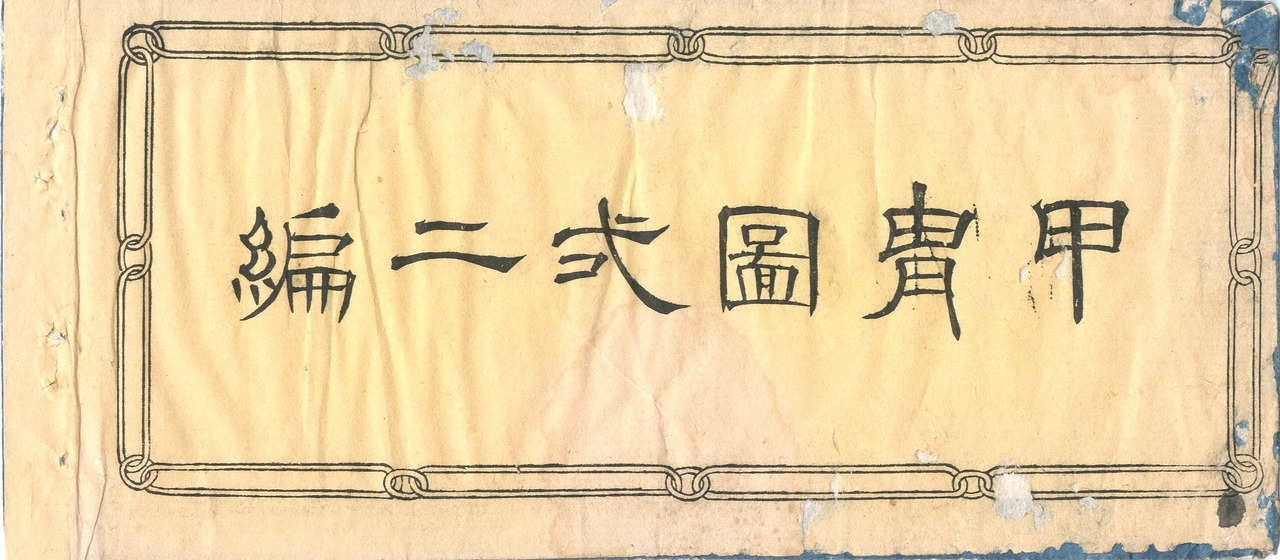 甲冑圖式二編